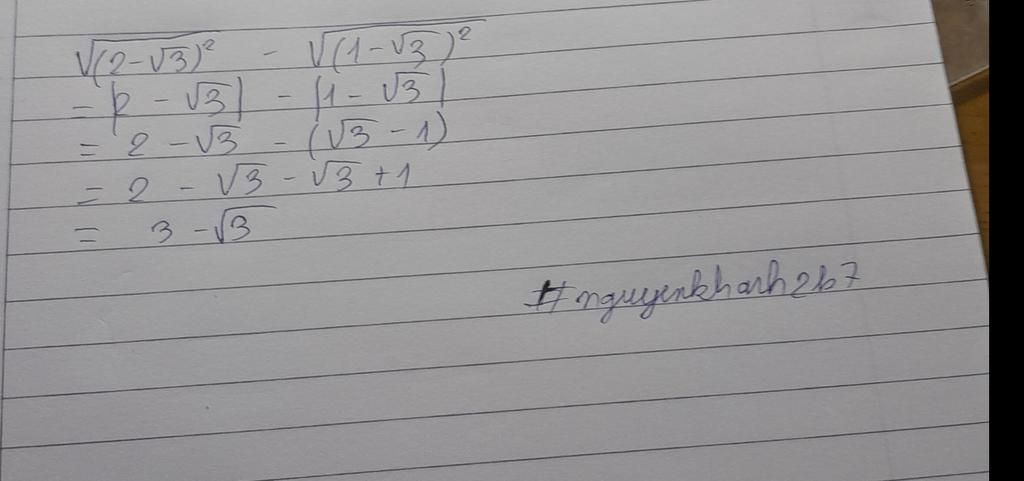 √(2-√3)² - √(1-√3)²
= |2 - √3| - |1 - √3|
= 2 - √3 - (√3 - 1)
= 2 - √3 - √3 + 1
= 3 - √3
#nguyenkhanh2b7